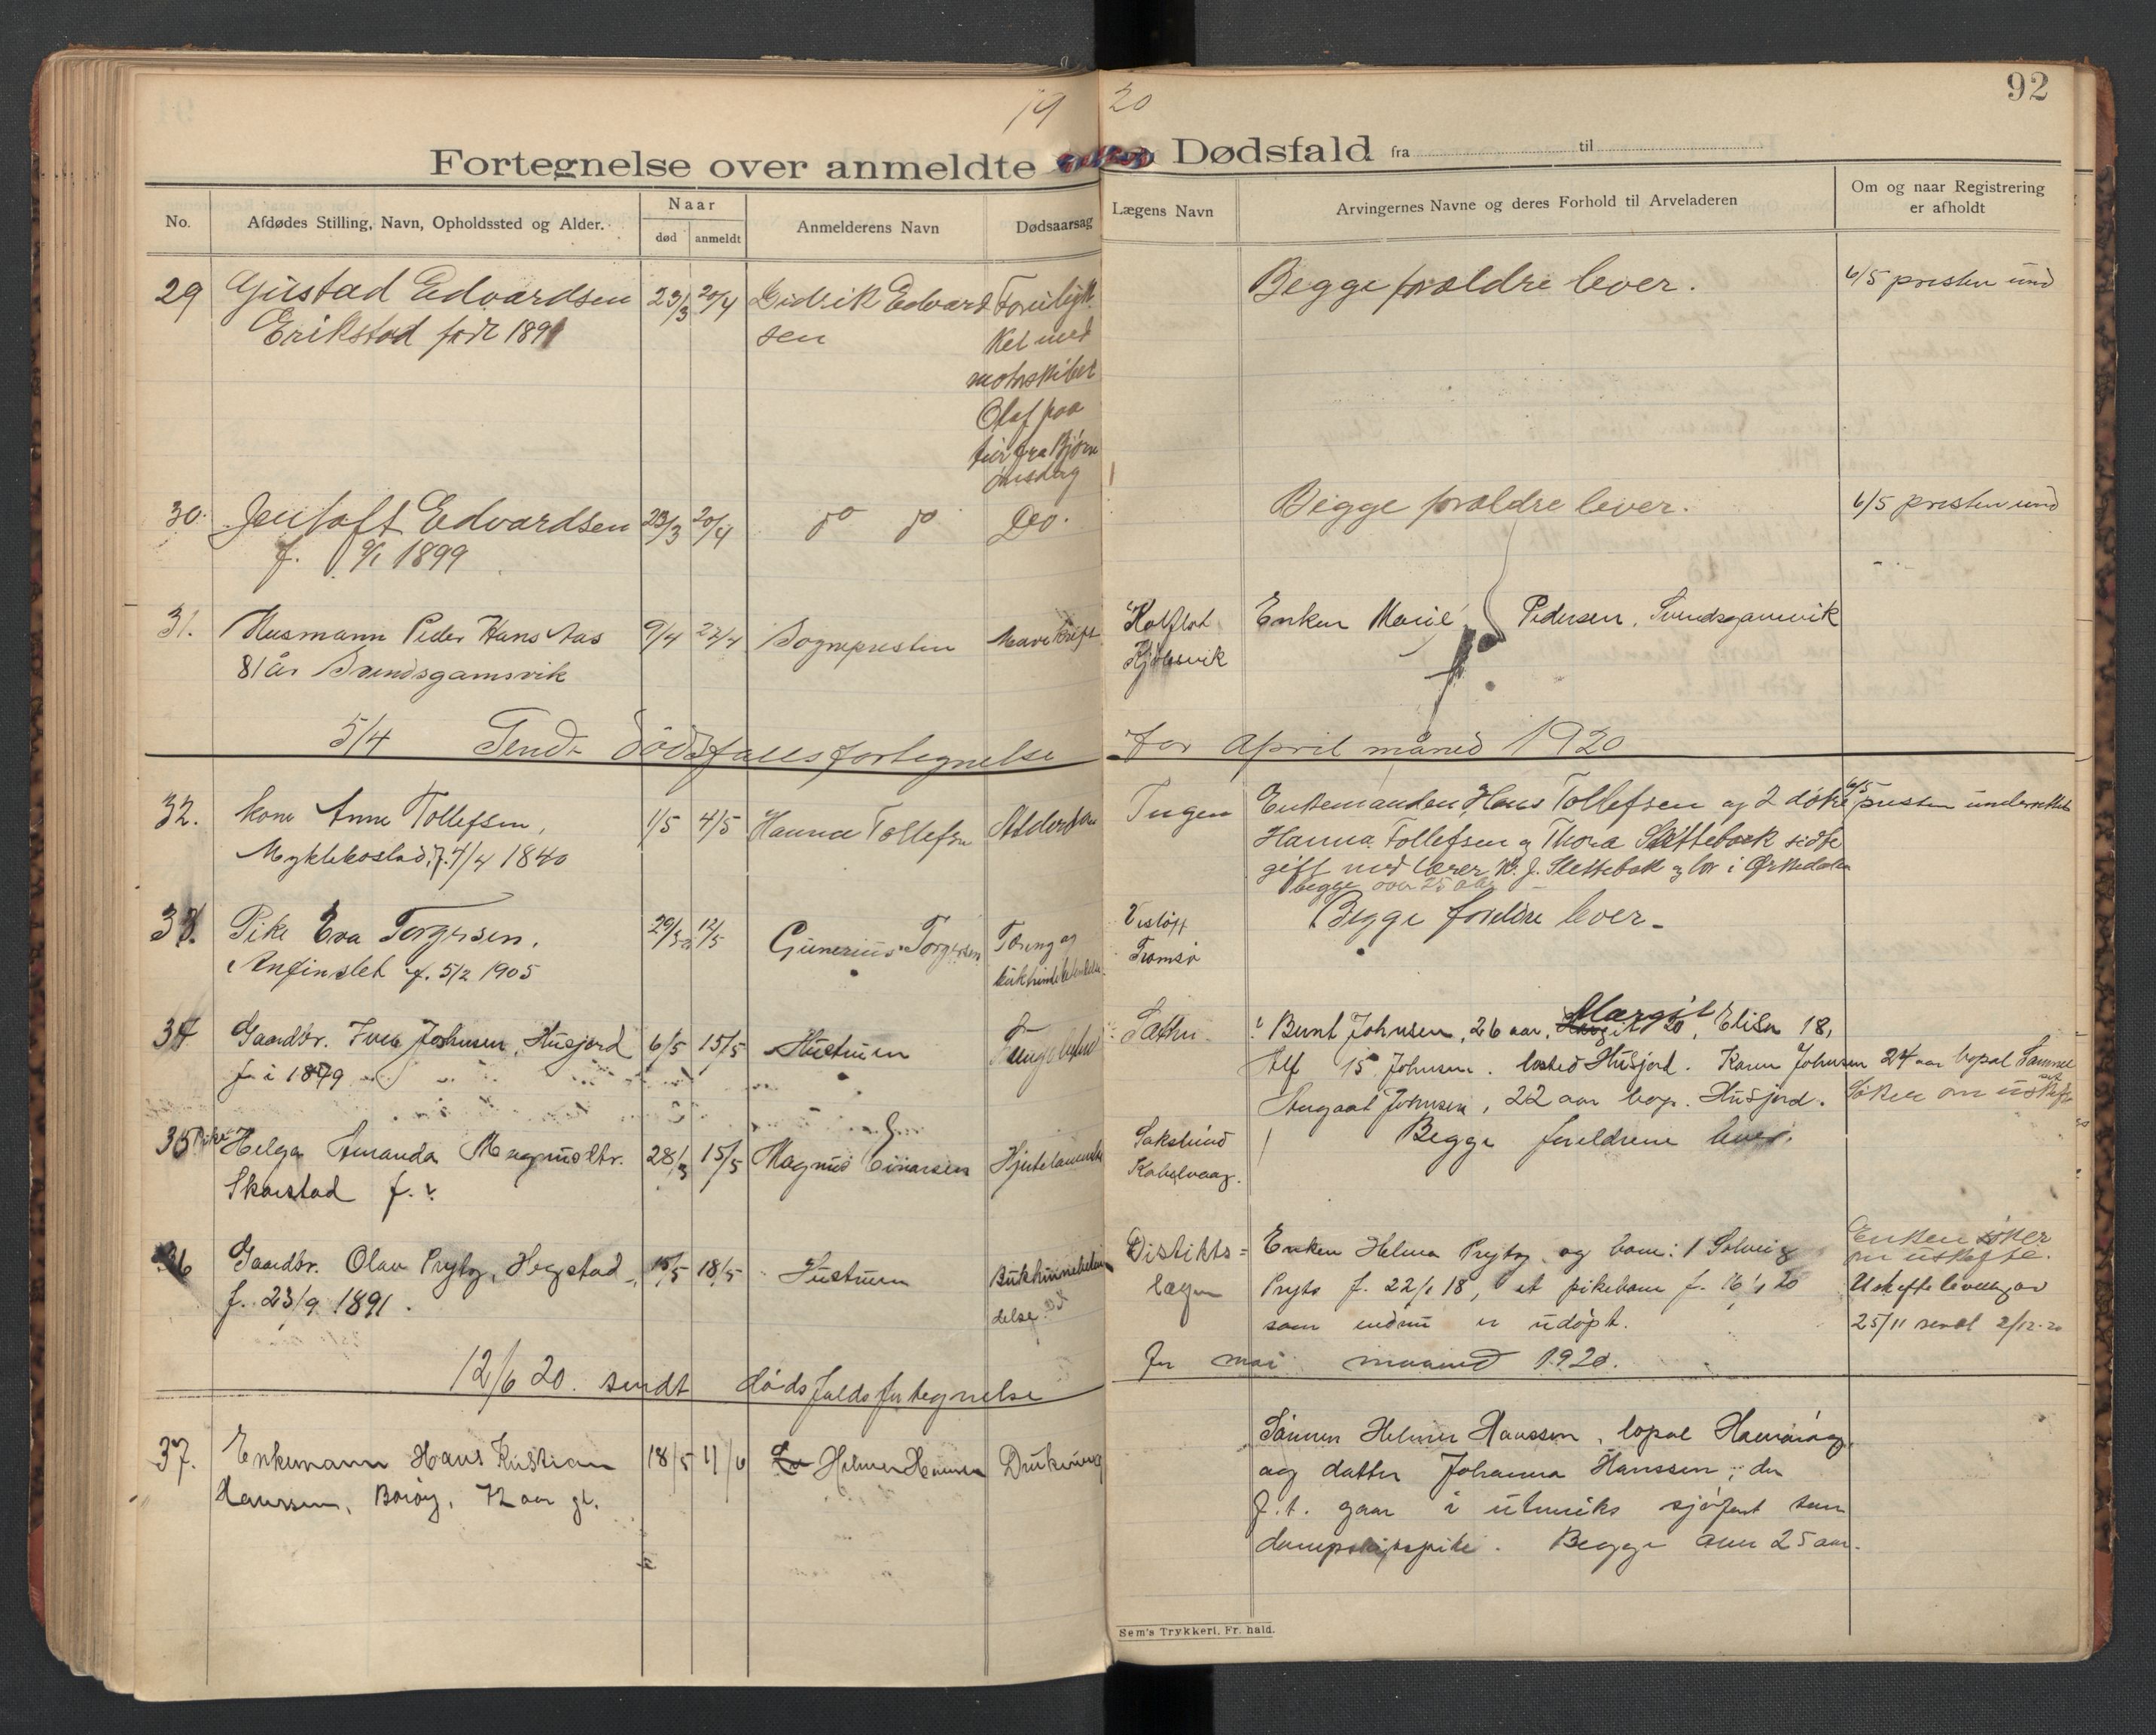 19 20
92
Fortegnelse over anmeldte Dødsfald fra til
No.
Afdødes Stilling, Navn, Opholdssted og Alder.
Naar
død
anmeldt
Anmelderens Navn
Dødsaarsag
Lægens Navn
Arvingernes Navne og deres Forhold til Arveladeren
Om og naar Registrering
er afholdt
29 Gustad Edvardsen 23/3 20/4 Didrik Edvard Forulyk Begge forældre lever. 6/5 presten und
Erikstad født 1891 sen ket med
motorskibet
Olaf paa
tur fra Bjørn
30. Jentoft Edvardsen 23/3 20/4 do do Do. Begge forældre lever. 6/5 presten und
f. 9/1 1899
31. Husmann Peder Hans Aas 9/4 27/4 Sognepresten Mavekræft Enken Marie Pedersen, Svendsgamvik
81 år Svendsgamsvik Kjølsvik
5/4 Sendt dødsfallsfortegnelse for april måned 1920
32. Kone Anne Tollefsen, 1/5 4/5 Hanna Tollefsen Alderdom Ingen Enkemanden Hans Tollefsen og 2 døtre 6/5 presten underrettet
Myklebostad, f. 4/4 1840 Hanna Tollefsen og Thora Slettebak sidste
gift med lærer K. J. Slettebak og bor i Ørkedalen
begge over 25 aar
33. Pike Eva Torgersen, 29/3 12/5 Gunerius Torgersen Tæring og Begge foreldre lever.
Anfinslet f. 5/2 1905 bukhindebetendelse Tromsø
34 Gaardbr. Johnsen, Husjord 6/5 15/5 Hustruen Bernt Johnsen, 26 aar, Margit 20, Elisa 18,
f. i 1879 Alf 15 Johnsen. bosted Husjord. Karen Johnsen 24 aar bopæl
August Johnsen, 22 aar bop. Husjord. Søker om uskifte
35 Pike Helga Amanda Magnusdtr. 28/3 15/5 Magnus Einarsen Hjertelammelse Begge foreldrene lever.
Skarstad f. Kabelvaag.
36 Gaardbr. Olav Prytz, Hegstad 15/5 18/5 Hustruen Bukhinnebeten Distrikts= Enken Helma Prytz og barn: 1 Solveig Enken søker
f. 23/9 1891. delse lægen Prytz f. 22/1 18, et pikebarn f. 16/1 20 om uskifte.
som endnu er udøpt. Uskiftebevilling av
25/11 sendt 2/12-20
12/6 20. sendt dødsfaldsfortegnelse for mai maaned 1920.
37. Enkemann Hans Kristian 18/5 11/6 Helmer Hanssen Drukning Sønnen Helmer Hanssen, bopæl Hamarøy,
Hanssen, Barøy, 72 aar gl. og datter Johanna Hanssen, der
f.t. gaar i utenriks sjøfart som
dampskibspike. Begge over 25 aar.
Sem's Trykkeri, Fr. hald.